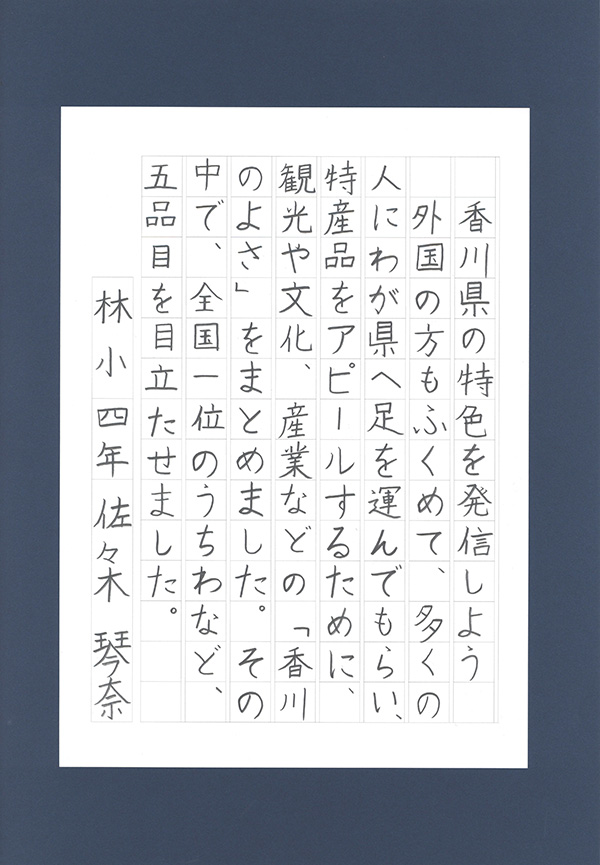 香川県の特色を発信しよう
外国の方もふくめて、多くの
人にわが県へ足を運んでもらい、
特産品をアピールするために、
観光や文化、産業などの「香川
のよさ」をまとめました。その
中で、全国一位のうちわなど、
五品目を目立たせました。
林小 四年 佐々木 琴奈